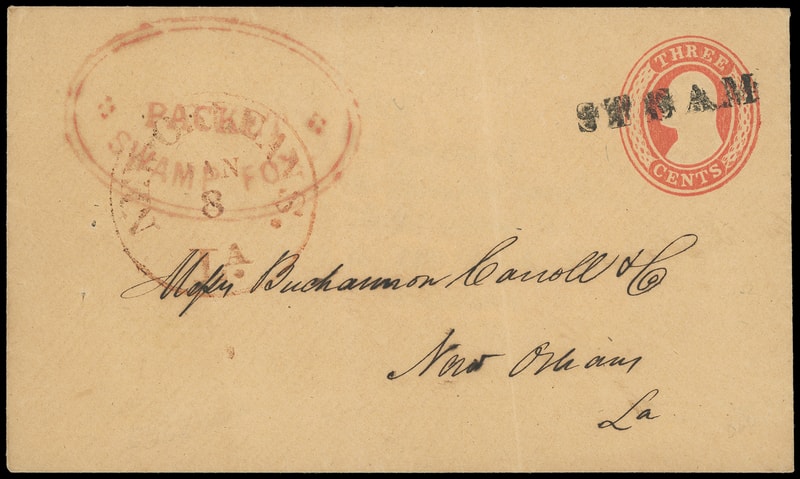 THREE
CENTS
STEAM
PACKET
SWAMP FOX
JAN
8
LA.
Messrs Buchannon Carroll & Co
New Orleans
La